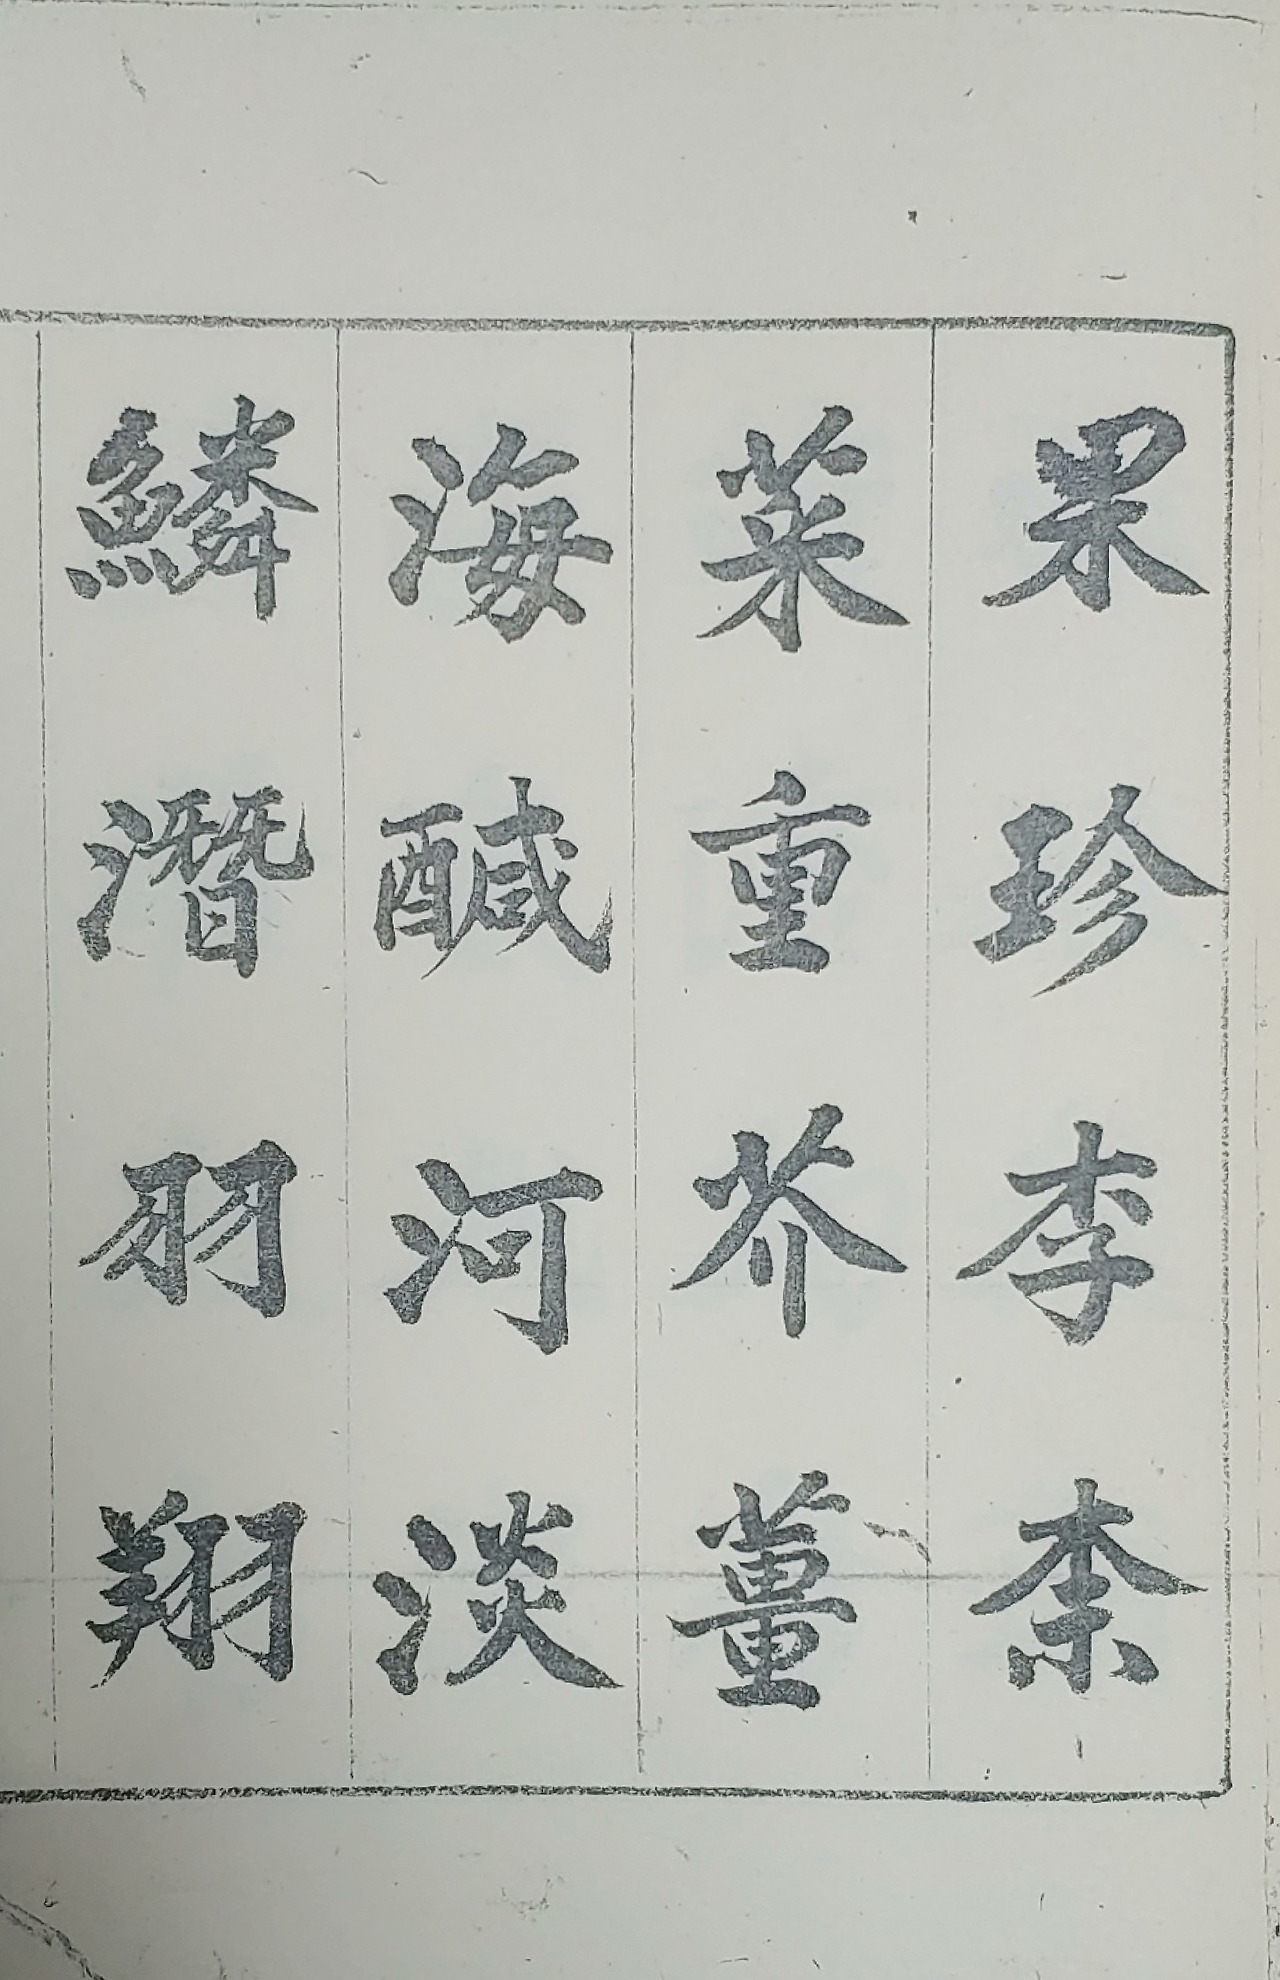 果珍李柰
菜重芥薑
海醎河淡
鱗潛羽翔